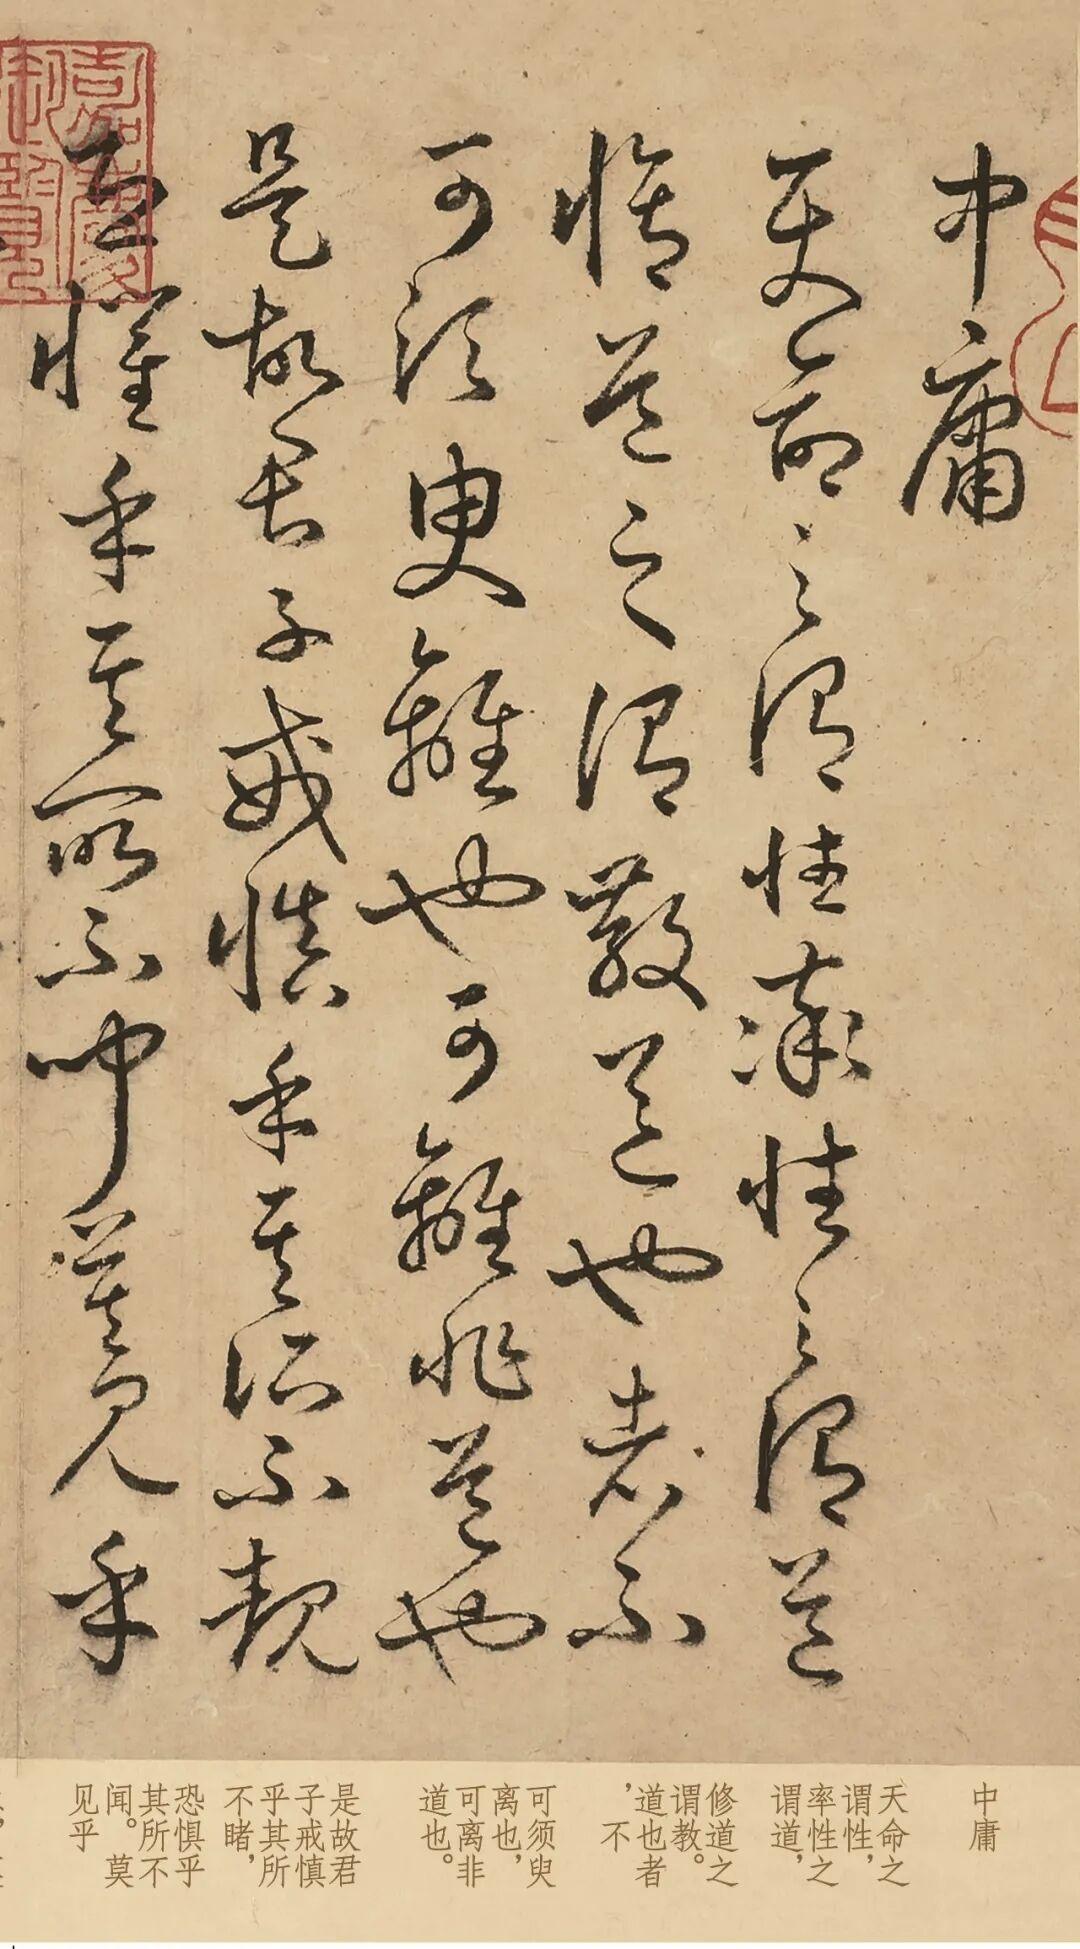 中庸
天命之謂性率性之謂道
脩道之謂教道也者不
可須臾離也可離非道也
是故君子戒慎乎其所不覩
恐懼乎其所不聞莫見乎
中庸
天命之
谓性，
率性之
谓道，
修道之
谓教。
道也者
，不
可须臾
离也，
可离非
道也。
是故君
子戒慎
乎其所
不睹，
恐惧乎
其所不
闻。莫
见乎